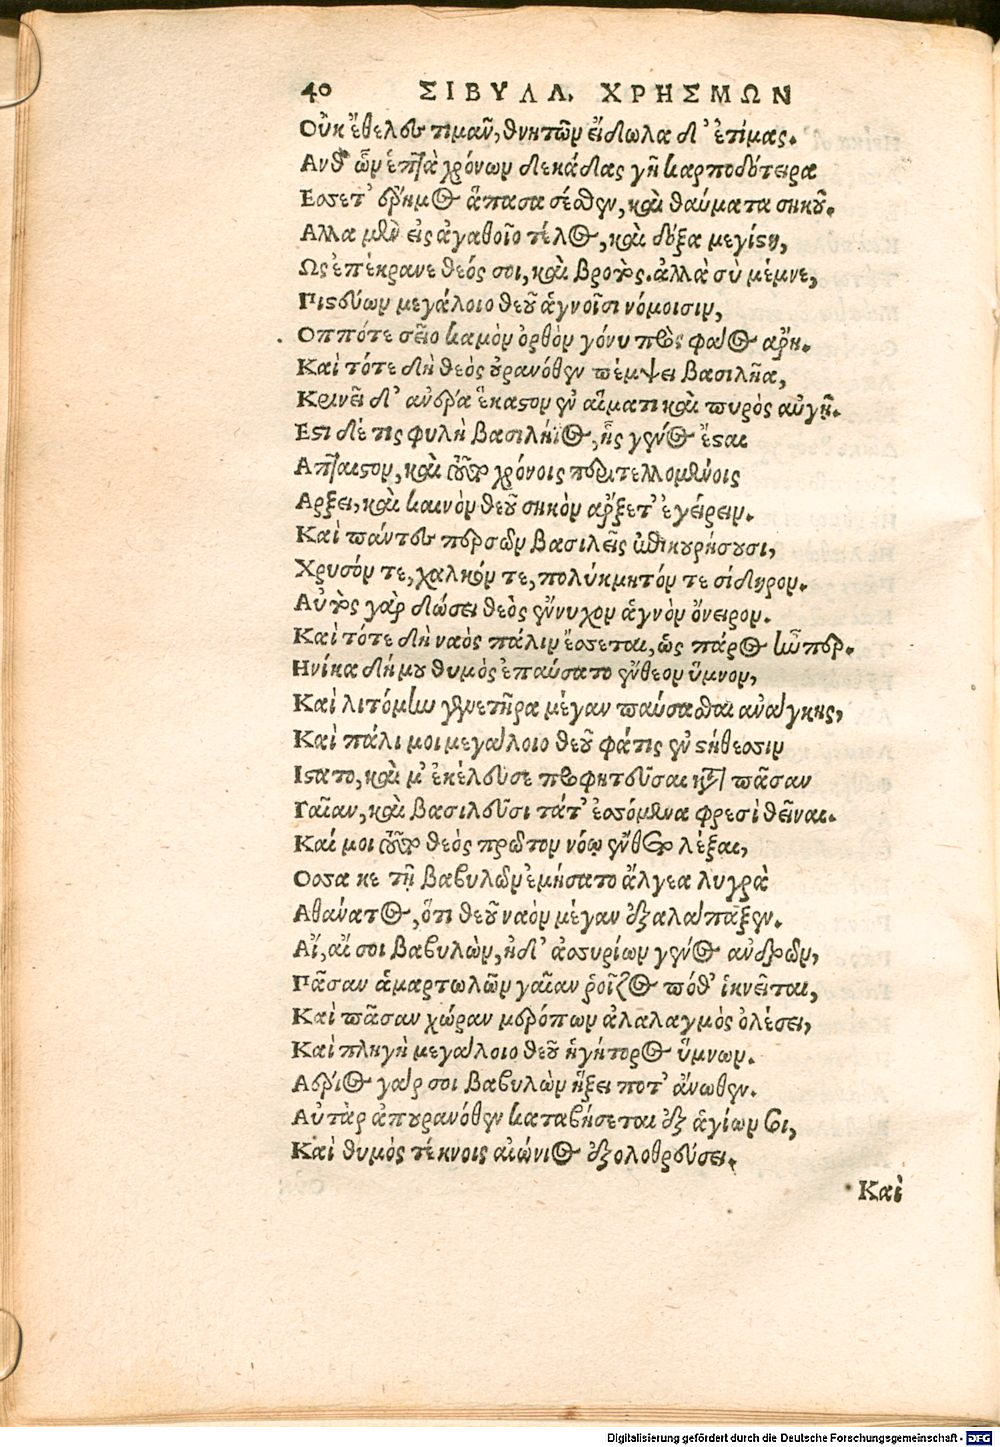 40 ΣΙΒΥΛΛ. ΧΡΗΣΜΩΝ
Οὐκ ἔθελες τιμᾶν, θνητῶν εἴδωλα δ' ἐτίμας.
Ανθ' ὧν ἑπτὰ χρόνων δεκάδας γῆ καρποδότειρα
Εσσετ' ἔρημος ἅπασα σέθεν, καὶ θαύματα σηκοῦ.
Αλλα μένει σ' ἀγαθοῖο τέλος, καὶ δόξα μεγίστη,
Ως ἐπέκρανε θεός σοι, καὶ βροτός. ἀλλὰ σὺ μέμνε,
Πιστεύων μεγάλοιο θεοῦ ἁγνοῖσι νόμοισιν,
Οππότε σεῖο καμὸν ὀρθὸν γόνυ πρὸς φάος ἄρῃ.
Καὶ τότε δὴ θεὸς οὐρανόθεν πέμψει βασιλῆα,
Κρινεῖ δ' ἄνδρα ἕκαστον ἐν αἵματι καὶ πυρὸς αὐγῇ.
Εστι δέ τις φυλὴ βασιλήϊος, ἧς γένος ἔσται
Απταιστον, καὶ τοῦτο χρόνοις περιτελλομένοις
Αρξει, καὶ καινὸν θεοῦ σηκὸν ἄρξετ' ἐγείρειν.
Καὶ πάντες περσῶν βασιλεῖς ἐπικουρήσουσι,
Χρυσόν τε, χαλκόν τε, πολύκμητόν τε σίδηρον.
Αὐτὸς γὰρ δώσει θεὸς ἔννυχον ἁγνὸν ὄνειρον.
Καὶ τότε δὴ ναὸς πάλιν ἔσσεται, ὡς πάρος ἦεν περ.
Ηνίκα δή μου θυμὸς ἐπαύσατο ἔνθεον ὕμνον,
Καὶ λιτόμην γενετῆρα μέγαν παύσασθαι ἀνάγκης,
Καὶ πάλι μοι μεγάλοιο θεοῦ φάτις ἐν στήθεσσιν
Ιστατο, καὶ μ' ἐκέλευσε προφητεῦσαι κατὰ πᾶσαν
Γαῖαν, καὶ βασιλεῦσι τάτ' ἐσσόμενα φρεσὶ θεῖναι.
Καί μοι τοῦτο θεὸς πρῶτον νόῳ ἔνθετο λέξαι,
Οσσα κε τῇ βαβυλῶν ἐμήσατο ἄλγεα λυγρὰ
Αθάνατος, ὅτι θεοῦ ναὸν μέγαν ἐξαλάπαξεν.
Αἴ, αἴ σοι βαβυλὼν, ἠδ' ἀσσυρίων γένος ἀνδρῶν,
Πᾶσαν ἁμαρτωλῶν γαῖαν ῥοῖζος πόθ' ἱκνεῖται,
Καὶ πᾶσαν χώραν μερόπων ἀλαλαγμὸς ὀλέσει,
Καὶ πληγὴ μεγάλοιο θεοῦ ἡγήτορος ὕμνων.
Αέριος γάρ σοι βαβυλὼν ἥξει ποτ' ἄνωθεν.
Αὐτὰρ ἀπουρανόθεν καταβήσεται ἐξ ἁγίων σοι,
Καὶ θυμὸς τέκνοις αἰώνιος ἐξολοθρεύσει.
Καὶ
Digitalisierung gefördert durch die Deutsche Forschungsgemeinschaft - DFG